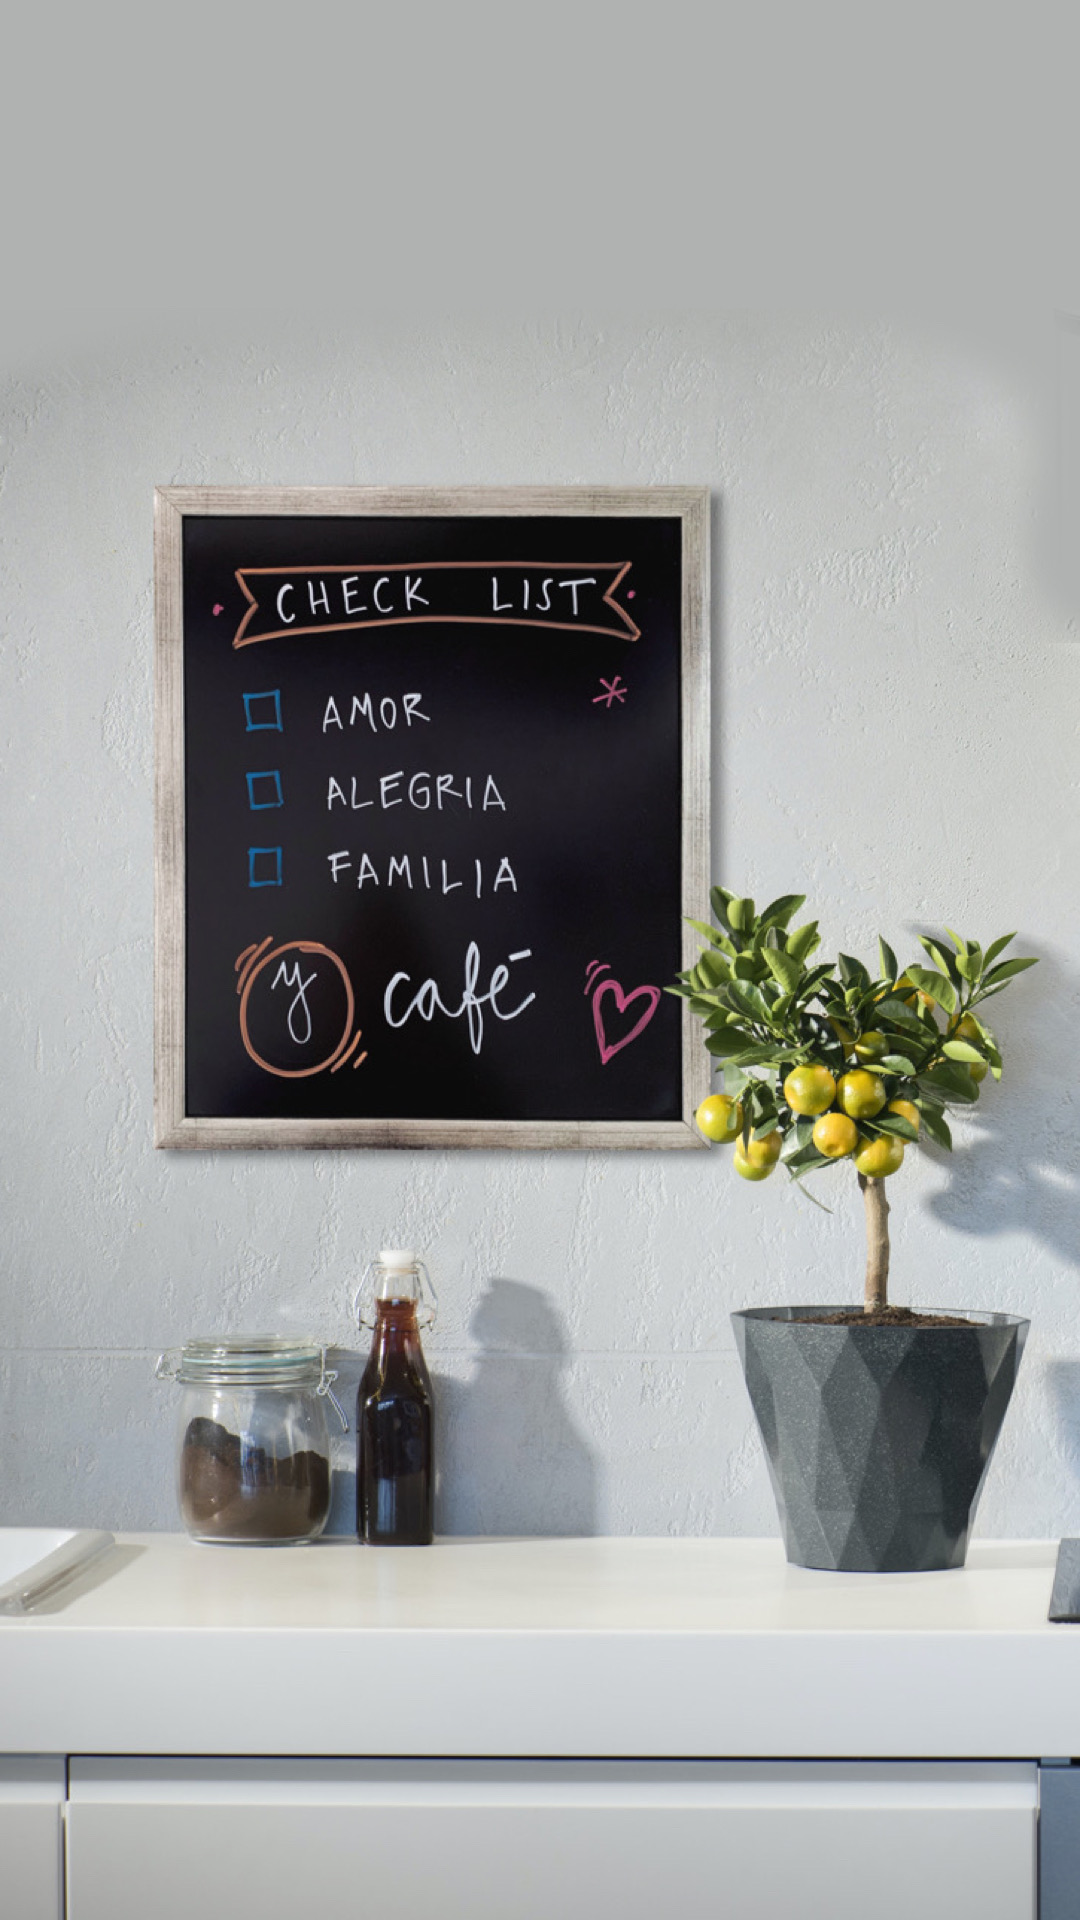 CHECK LIST
AMOR
ALEGRIA
FAMILIA
y café